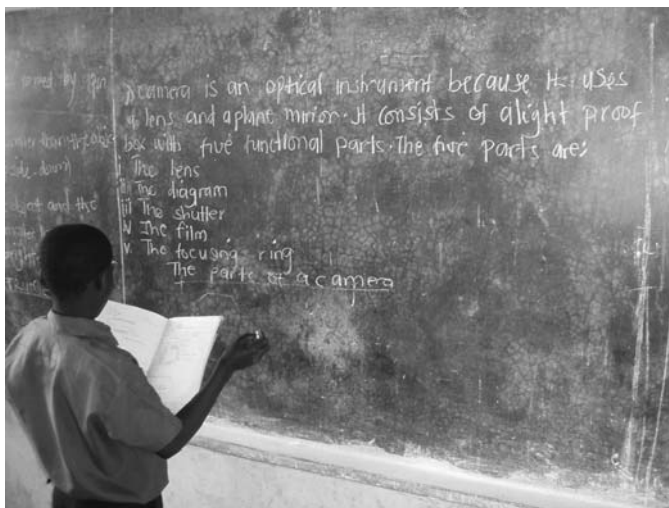 A camera is an optical instrument because It uses
a lens and a plant mirror. It consists of a light proof
box with five functional parts. The five parts are:
i The lens
ii The diagram
iii The shutter
iv The film
v The focusing ring
The parts of a camera
by
down
object and the